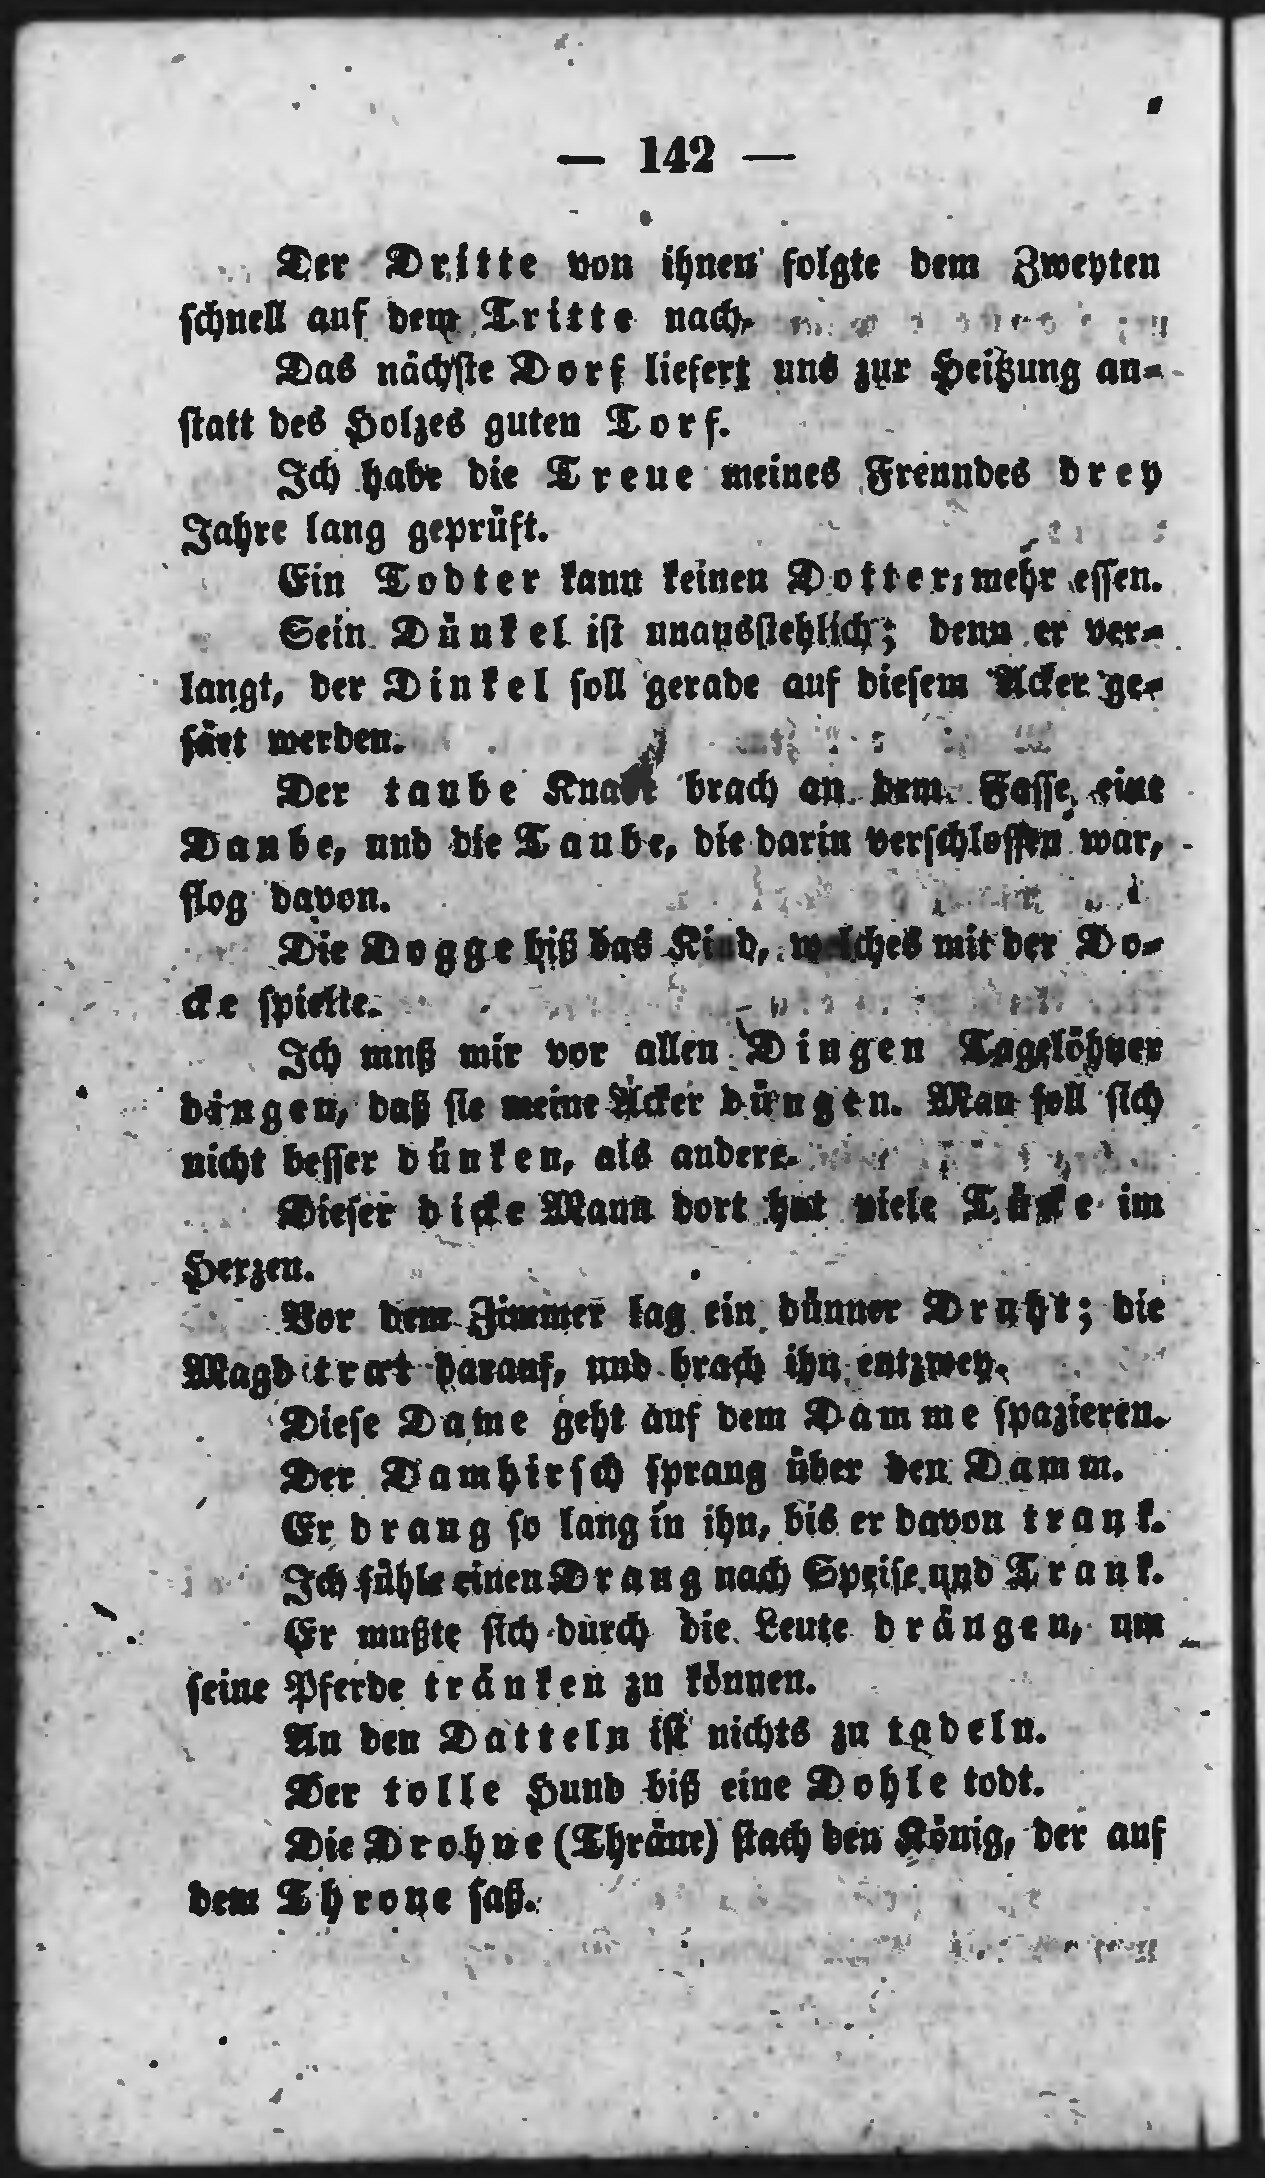 — 142 —
Der Dritte von ihnen folgte dem Zweyten
schnell auf dem Tritte nach.
Das nächste Dorf liefert uns zur Heitzung an-
statt des Holzes guten Torf.
Ich habe die Treue meines Freundes drey
Jahre lang geprüft.
Ein Todter kann keinen Dotter mehr essen.
Sein Dünkel ist unausstehlich; denn er ver-
langt, der Dinkel soll gerade auf diesem Acker ge-
säet werden.
Der taube Knabe brach an dem Fasse eine
Daube, und die Taube, die darin verschlossen war,
flog davon.
Die Dogge biß das Kind, welches mit der Do-
cke spielte.
Ich muß mir vor allen Dingen Tagelöhner
dingen, daß sie meine Äcker düngen. Man soll sich
nicht besser dünken, als andere.
Dieser dicke Mann dort hat viele Tücke im
Herzen.
Vor dem Zimmer lag ein dünner Draht; die
Magd trat darauf, und brach ihn entzwey.
Diese Dame geht auf dem Damme spazieren.
Der Damhirsch sprang über den Damm.
Er drang so lang in ihn, bis er davon trank.
Ich fühle einen Drang nach Speise und Trank.
Er mußte sich durch die Leute drängen, um
seine Pferde tränken zu können.
An den Datteln ist nichts zu tadeln.
Der tolle Hund biß eine Dohle todt.
Die Drohne (Thräne) stach den König, der auf
dem Throne saß.